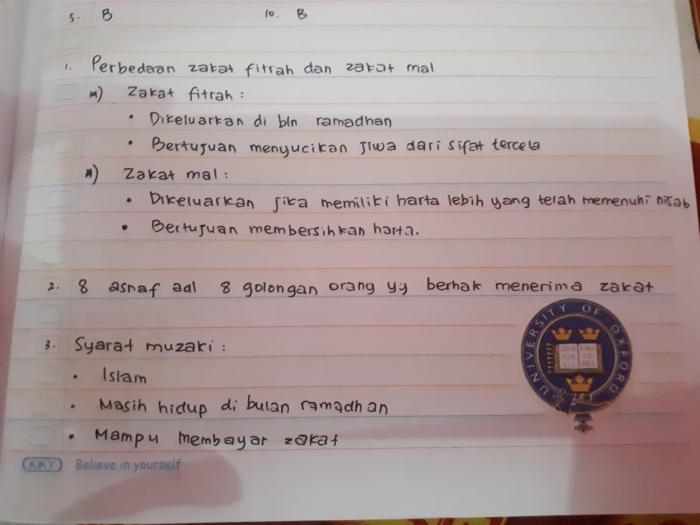 5. B 10. B
1. Perbedaan zakat fitrah dan zakat mal
*) Zakat fitrah :
• Dikeluarkan di bln ramadhan
• Bertujuan menyucikan jiwa dari sifat tercela
*) Zakat mal :
• Dikeluarkan jika memiliki harta lebih yang telah memenuhi nisab
• Bertujuan membersihkan harta.
2. 8 asnaf adl 8 golongan orang yg berhak menerima zakat
3. Syarat muzaki :
• Islam
• Masih hidup di bulan ramadhan
• Mampu membayar zakat
UNIVERSITY OF OXFORD
KIKY Believe in yourself